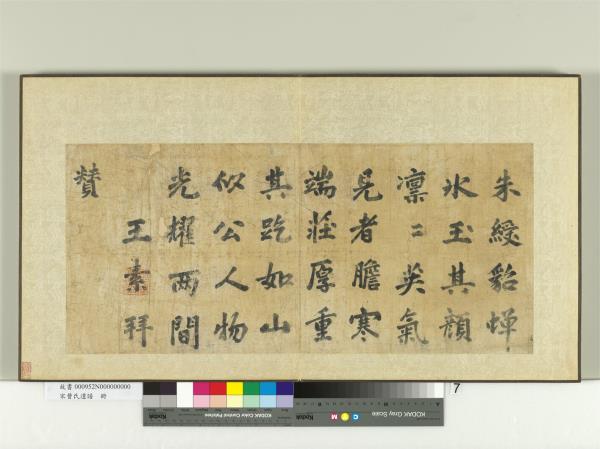 朱綬貂蟬
氷玉其顔
凛〻英氣
見者膽寒
端莊厚重
其屹如山
似公人物
光耀兩間
王素拜
贊
故書 000952N000000000
宋曾氏遺譜 冊
KODAK Color Control Patches
C Y M
KODAK Gray Scale
7